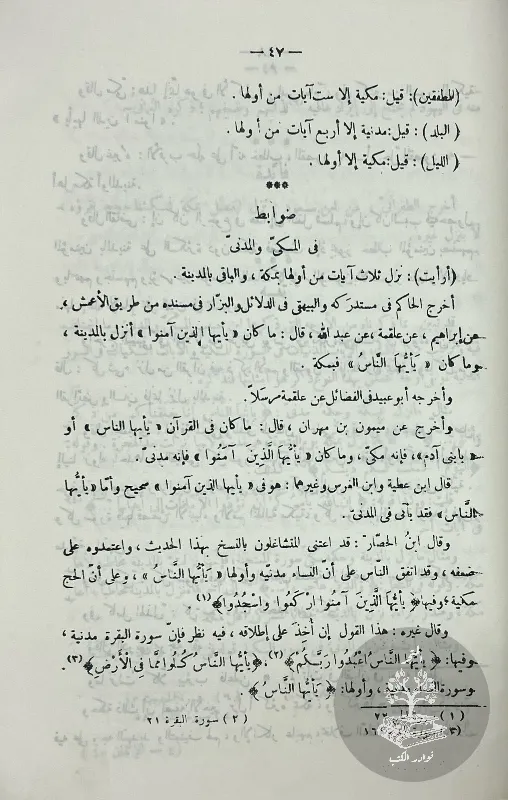 — ٤٧ —
(المطففين): قيل: مكية إلا ست آيات من أولها.
(البلد): قيل: مدنية إلا أربع آيات من أولها.
(الليل): قيل: مكية إلا أولها.
***
ضوابط
فى المكىّ والمدنىّ
(أرأيت): نزل ثلاث آيات من أولها بمكة، والباقى بالمدينة.
أخرج الحاكم فى مستدركه والبيهقى فى الدلائل والبزار فى مسنده من طريق الأعمش،
عن إبراهيم، عن علقمة، عن عبد الله، قال: ما كان « يأيها الذين آمنوا » أنزل بالمدينة،
وما كان « يَأَيُّهَا النَّاسُ » فبمكة.
وأخرجه أبو عبيد فى الفضائل عن علقمة مرسَلاً.
وأخرج عن ميمون بن مهران، قال: ما كان فى القرآن « يأيها الناس » أو
« يابنى آدم »، فإنه مكىّ، وما كان « يَأيُّهَا الَّذِينَ آمَنُوا » فإنه مدنىّ.
قال ابن عطية وابن الفرس وغيرهما: هو فى « يأيها الذين آمنوا » صحيح وأمّا « يَأَيُّهَا
النَّاس » فقد يأتى فى المدنىّ.
وقال ابنُ الحصّار: قد اعتنى المتشاغلون بالنسخ بهذا الحديث، واعتمدوه على
ضعفه، وقد اتفق الناس على أنّ النساء مدنيّه وأولها « يَأَيُّهَا النَّاسُ »، وعلى أنّ الحج
مكية، وفيها ﴿ يأيُّهَا الَّذِينَ آمَنُوا ارْكَعُوا وَاسْجُدُوا ﴾(١).
وقال غيره: هذا القول إن أُخِذَ على إطلاقه، فيه نظر فإنّ سورة البقرة مدنية،
وفيها: ﴿ يَأَيُّهَا النَّاسُ اعْبُدُوا رَبَّكُمْ ﴾(٢)، ﴿ يَأَيُّهَا النَّاسُ كُلُوا مِمَّا فِى الْأَرْضِ ﴾(٣).
وسورة النساء مدنية، وأولها: ﴿ يَأَيُّهَا النَّاسُ ﴾:
(١) ٧٧ (٢) سورة البقرة ٢١
(٣)
نوادر الكتب